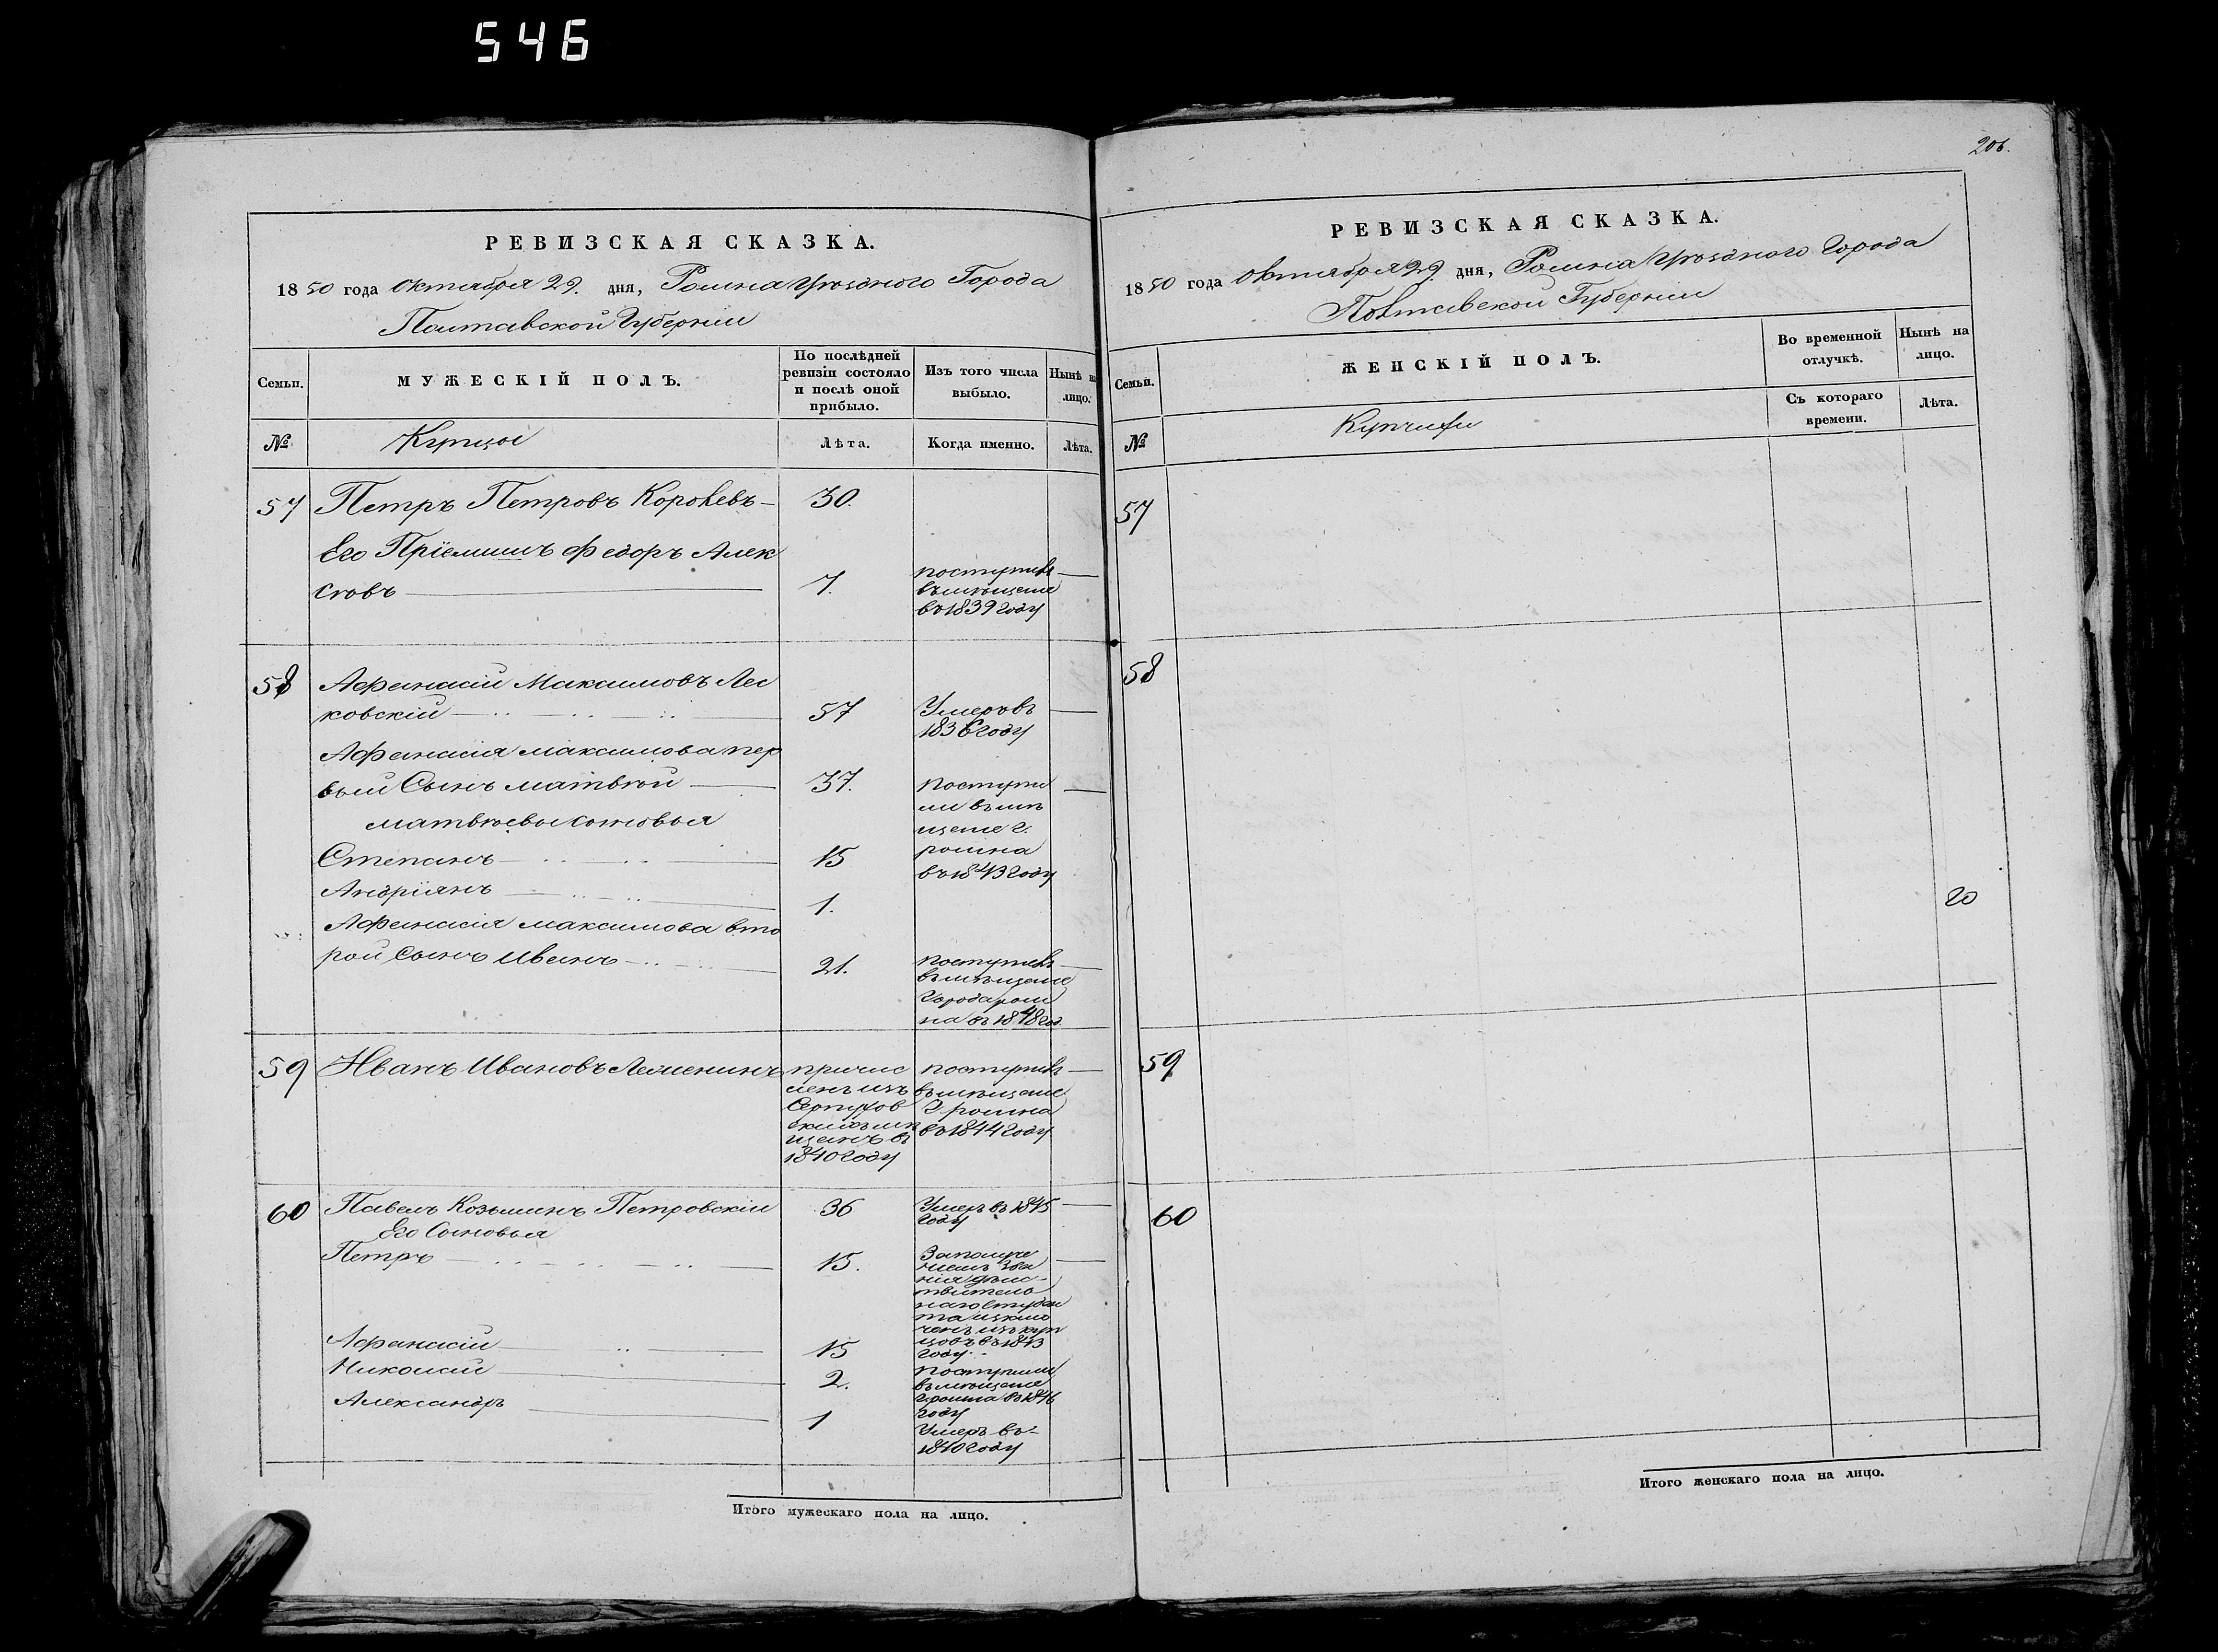 546
206.
РЕВИЗСКАЯ СКАЗКА.
1850 года Октября 29. дня, Ромна Уѣзднаго Города
Полтавской Губерніи
Семьи.
МУЖЕСКІЙ ПОЛЪ.
По послѣдней ревизіи состояло и послѣ оной прибыло.
Изъ того числа выбыло.
Нынѣ на лицо.
№
Купцы
Лѣта.
Когда именно.
Лѣта.
57 Петръ Петровъ Королевъ 30.
Его Пріемышъ Федоръ Алек
сѣовъ 7. поступилъ
въ мѣщане
въ 1839 году
58 Афанасій Максимовъ Лес
ковскій 57 Умеръ въ
1836 году
Афанасія Максимова пер
вый Сынъ Матвѣй 37. Поступи
ли въ мѣ
щане г.
Матвѣевы сыновья
Степанъ 15 ромна
въ 1843 году
Андріянъ 1.
Афанасія Максимова вто
рой Сынъ Иванъ 21. поступилъ
въ мѣщане
Города ром
на въ 1848 год.
59 Иванъ Ивановъ причис
ленъ изъ
Серпухов
скихъ мѣ
щанъ въ
1840 году
поступилъ
въ мѣщане
г ромна
въ 1844 году
60 Павелъ Козьминъ Петровскій 36 Умеръ въ 1845
году
Его Сыновья
Петръ 15. За получе
ніемъ зва
нія дѣйс
твитель
наго студен
та исклю
ченъ изъ куп
цовъ въ 1843
году.
Афанасій 15
Николай 2. Поступили
въ мѣщане
г ромна въ 1846
году
Александръ 1 Умеръ въ
1840 году
Итого мужескаго пола на лицо.
РЕВИЗСКАЯ СКАЗКА.
1850 года Октября 29. дня, Ромна Уѣзднаго Города
Полтавской Губерніи
Семьи.
ЖЕНСКІЙ ПОЛЪ.
Во временной отлучкѣ.
Нынѣ на лицо.
№
Купчихи
Съ котораго времени.
Лѣта.
57
58
20
59
60
Итого женскаго пола на лицо.